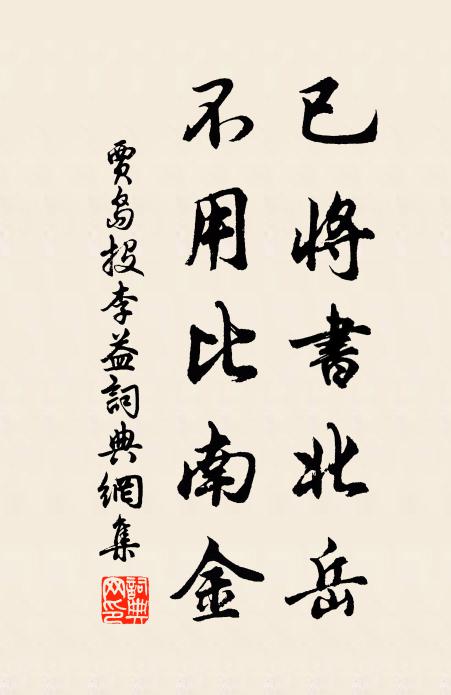 已將書北岳
不用比南金
賈島投李益詞典網集
詞典网印